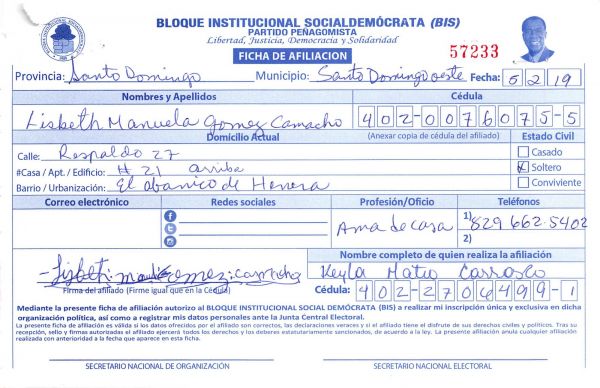 BLOQUE INSTITUCIONAL SOCIALDEMÓCRATA (BIS)
PARTIDO PEÑAGOMISTA
Libertad, Justicia, Democracia y Solidaridad
FICHA DE AFILIACION
57233
Provincia: Santo Domingo Municipio: Santo Domingo oeste Fecha: 5/2/19
Nombres y Apellidos Cédula
Lisbeth Manuela Gomez Camacho 402-0076075-5
Domicilio Actual (Anexar copia de cédula del afiliado) Estado Civil
Calle: Respaldo 27 Casado
#Casa / Apt. / Edificio: # 21 arriba Soltero
Barrio / Urbanización: El abanico de Herrera Conviviente
Correo electrónico Redes sociales Profesión/Oficio Teléfonos
Ama de casa 1) 829 662-5402
2)
Nombre completo de quien realiza la afiliación
Lisbeth: manuela Gomez: camacho Keyla Mateo Carrasco
Firma del afiliado (Firme igual que en la Cédula) Cédula: 402-2706499-1
Mediante la presente ficha de afiliación autorizo al BLOQUE INSTITUCIONAL SOCIAL DEMÓCRATA (BIS) a realizar mi inscripción única y exclusiva en dicha
organización política, así como a registrar mis datos personales ante la Junta Central Electoral.
La presente ficha de afiliación es válida si los datos ofrecidos por el afiliado son correctos, las declaraciones veraces y si el afiliado tiene el disfrute de sus derechos civiles y políticos. Tras su
recepción, sello y firmas autorizadas el afiliado ejercerá todos los derechos y los deberes estatutariamente sancionados, de acuerdo a la ley. La presente afiliación anula cualquier afiliación
realizada con anterioridad a la fecha que aparece en esta ficha.
SECRETARIO NACIONAL DE ORGANIZACIÓN SECRETARIO NACIONAL ELECTORAL